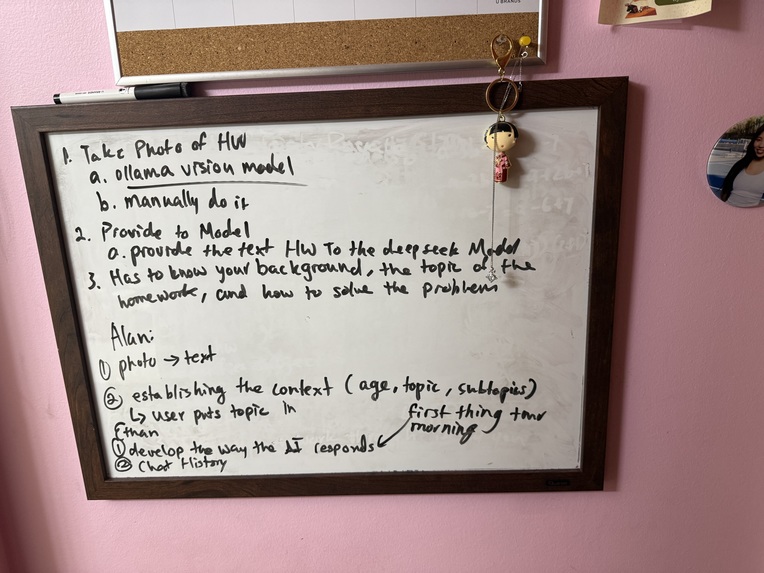 U BRANDS
1. Take Photo of HW
a. ollama vision model
b. manually do it
2. Provide to Model
a. provide the text HW To the deepseek Model
3. Has to know your background, the topic of the
homework, and how to solve the problem
Alan:
① photo → text
② establishing the context (age, topic, subtopics)
↳ user puts topic in
Ethan
① develop the way the AI responds
② Chat History
first thing tmr
morning